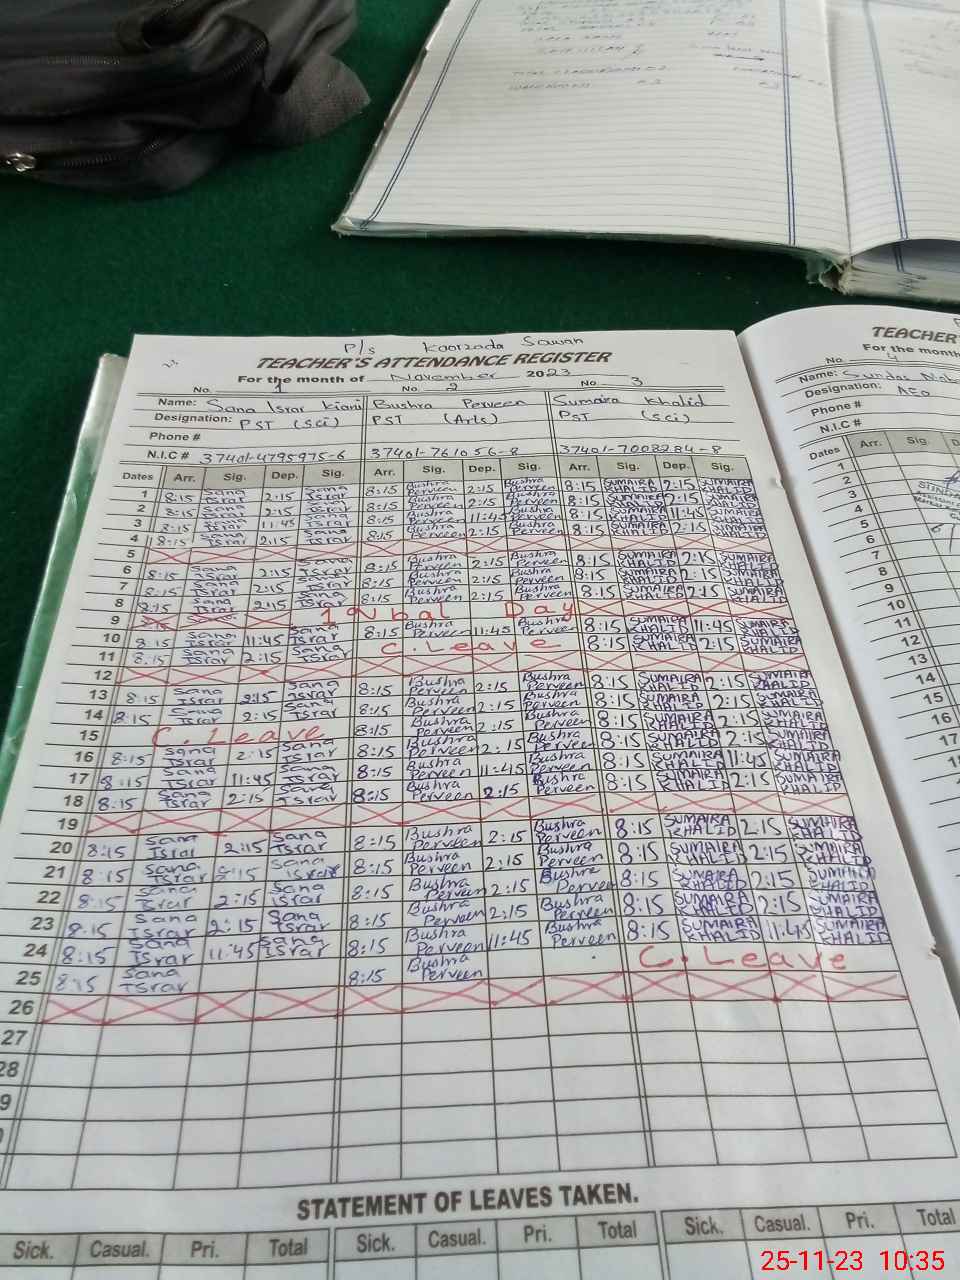 P/s Koorzada Sawan
TEACHER'S ATTENDANCE REGISTER
For the month of November 2023
No. 1 No. 2 No. 3
Name: Sana Israr Kiani Bushra Perveen Sumaira Khalid
Designation: PST (Sci) PST (Arts) PST (Sci)
Phone #
N.I.C # 37401-4795975-6 37401-761056-8 37401-7008284-8
Dates Arr. Sig. Dep. Sig. Arr. Sig. Dep. Sig. Arr. Sig. Dep. Sig.
1 8:15 Sana Israr 2:15 Sana Israr 8:15 Bushra Perveen 2:15 Bushra Perveen 8:15 SUMAIRA KHALID 2:15 SUMAIRA KHALID
2 8:15 Sana Israr 2:15 Sana Israr 8:15 Bushra Perveen 2:15 Bushra Perveen 8:15 SUMAIRA KHALID 2:15 SUMAIRA KHALID
3 8:15 Sana Israr 11:45 Sana Israr 8:15 Bushra Perveen 11:45 Bushra Perveen 8:15 SUMAIRA KHALID 11:45 SUMAIRA KHALID
4 8:15 Sana Israr 2:15 Sana Israr 8:15 Bushra Perveen 2:15 Bushra Perveen 8:15 SUMAIRA KHALID 2:15 SUMAIRA KHALID
5
6 8:15 Sana Israr 2:15 Sana Israr 8:15 Bushra Perveen 2:15 Bushra Perveen 8:15 SUMAIRA KHALID 2:15 SUMAIRA KHALID
7 8:15 Sana Israr 2:15 Sana Israr 8:15 Bushra Perveen 2:15 Bushra Perveen 8:15 SUMAIRA KHALID 2:15 SUMAIRA KHALID
8 8:15 Sana Israr 2:15 Sana Israr 8:15 Bushra Perveen 2:15 Bushra Perveen 8:15 SUMAIRA KHALID 2:15 SUMAIRA KHALID
9 Iqbal Day
10 8:15 Sana Israr 11:45 Sana Israr 8:15 Bushra Perveen 11:45 Bushra Perveen 8:15 SUMAIRA KHALID 11:45 SUMAIRA KHALID
11 8:15 Sana Israr 2:15 Sana Israr C. Leave 8:15 SUMAIRA KHALID 2:15 SUMAIRA KHALID
12
13 8:15 Sana Israr 2:15 Sana Israr 8:15 Bushra Perveen 2:15 Bushra Perveen 8:15 SUMAIRA KHALID 2:15 SUMAIRA KHALID
14 8:15 Sana Israr 2:15 Sana Israr 8:15 Bushra Perveen 2:15 Bushra Perveen 8:15 SUMAIRA KHALID 2:15 SUMAIRA KHALID
15 C. Leave 8:15 Bushra Perveen 2:15 Bushra Perveen 8:15 SUMAIRA KHALID 2:15 SUMAIRA KHALID
16 8:15 Sana Israr 2:15 Sana Israr 8:15 Bushra Perveen 2:15 Bushra Perveen 8:15 SUMAIRA KHALID 2:15 SUMAIRA KHALID
17 8:15 Sana Israr 11:45 Sana Israr 8:15 Bushra Perveen 11:45 Bushra Perveen 8:15 SUMAIRA KHALID 11:45 SUMAIRA KHALID
18 8:15 Sana Israr 2:15 Sana Israr 8:15 Bushra Perveen 2:15 Bushra Perveen 8:15 SUMAIRA KHALID 2:15 SUMAIRA KHALID
19
20 8:15 Sana Israr 2:15 Sana Israr 8:15 Bushra Perveen 2:15 Bushra Perveen 8:15 SUMAIRA KHALID 2:15 SUMAIRA KHALID
21 8:15 Sana Israr 2:15 Sana Israr 8:15 Bushra Perveen 2:15 Bushra Perveen 8:15 SUMAIRA KHALID 2:15 SUMAIRA KHALID
22 8:15 Sana Israr 2:15 Sana Israr 8:15 Bushra Perveen 2:15 Bushra Perveen 8:15 SUMAIRA KHALID 2:15 SUMAIRA KHALID
23 8:15 Sana Israr 2:15 Sana Israr 8:15 Bushra Perveen 2:15 Bushra Perveen 8:15 SUMAIRA KHALID 2:15 SUMAIRA KHALID
24 8:15 Sana Israr 11:45 Sana Israr 8:15 Bushra Perveen 11:45 Bushra Perveen 8:15 SUMAIRA KHALID 11:45 SUMAIRA KHALID
25 8:15 Sana Israr 8:15 Bushra Perveen C. Leave
26
27
28
9
STATEMENT OF LEAVES TAKEN.
Sick. Casual. Pri. Total Sick. Casual. Pri. Total Sick. Casual. Pri. Total
TEACHER'
For the month
No. 4
Name: Sundas
Designation: AEO
Phone #
N.I.C #
Dates Arr. Sig.
1
2
3
4
5
6
7
8
9
10
11
12
13
14
15
16
17
25-11-23 10:35